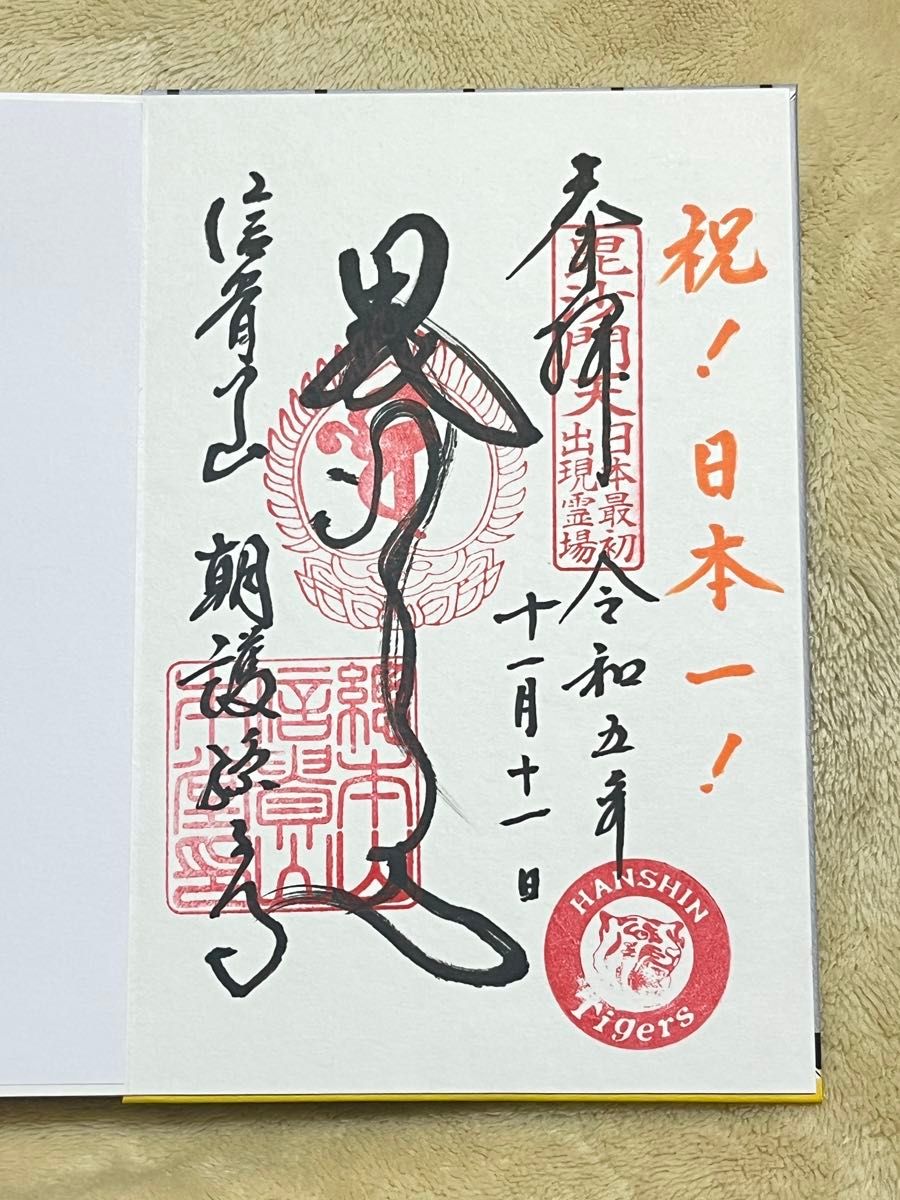 祝！日本一！
奉拝
毘沙門天
日本最初
出現霊場
令和五年
十一月十一日
信貴山 朝護孫子寺
總本山
信貴山
本堂印
HANSHIN
Tigers